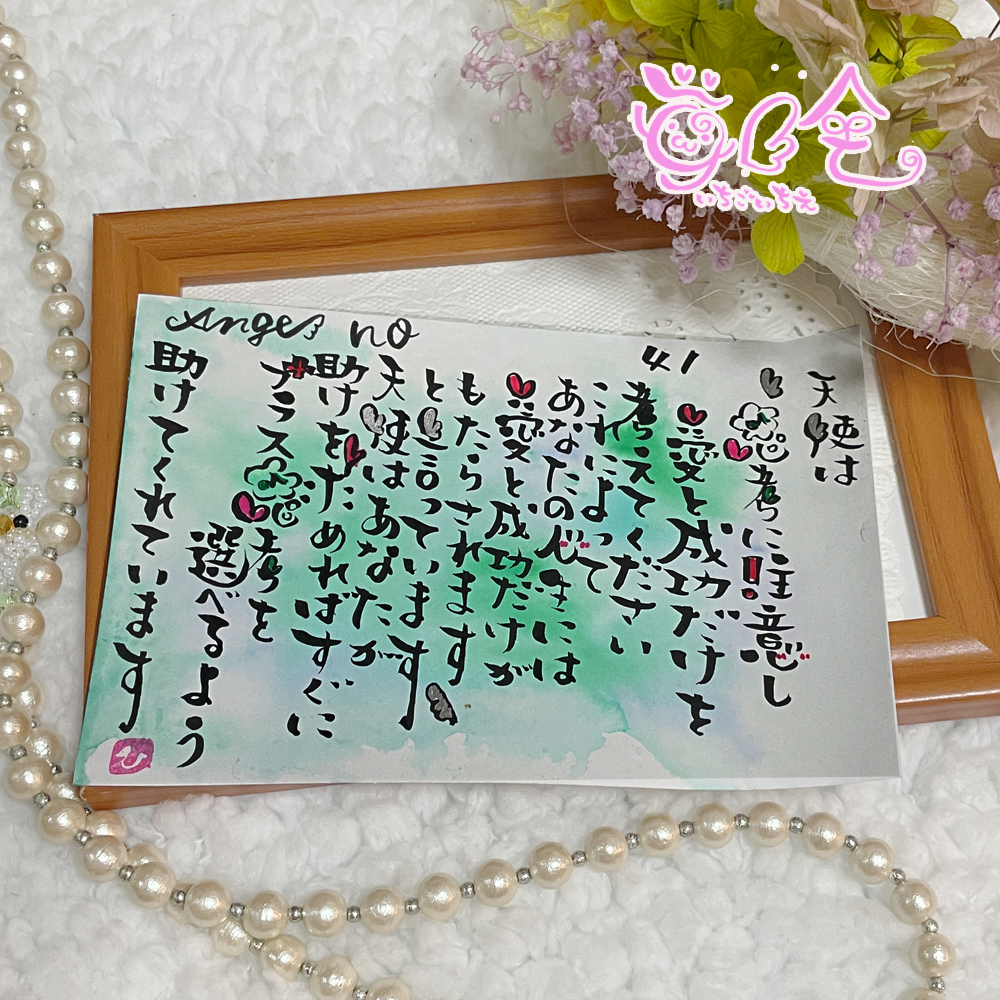 Angel no
41
天使は
思考に注意し
愛と成功だけを
考えてください
これによって
あなたの人生には
愛と成功だけが
もたらされます
と言っています
天使はあなたが
助けを求めればすぐに
プラス思考を
選べるよう
助けてくれています
いちごいちえ